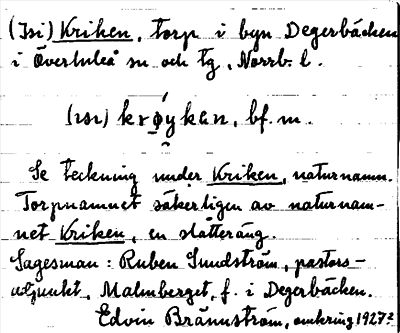 (Isi) Kriken, torp i byn Degerbäcken
i Överluleå sn och tg, Norrb. l.
(ısı) krøykan, bf. m.
Se teckning under Kriken, naturnamn.
Torpnamnet säkerligen av naturnam-
net Kriken, en slätteräng.
Sagesman: Ruben Sundström, pastors-
adjunkt, Malmberget, f. i Degerbäcken.
Edvin Brännström, omkring 1927?